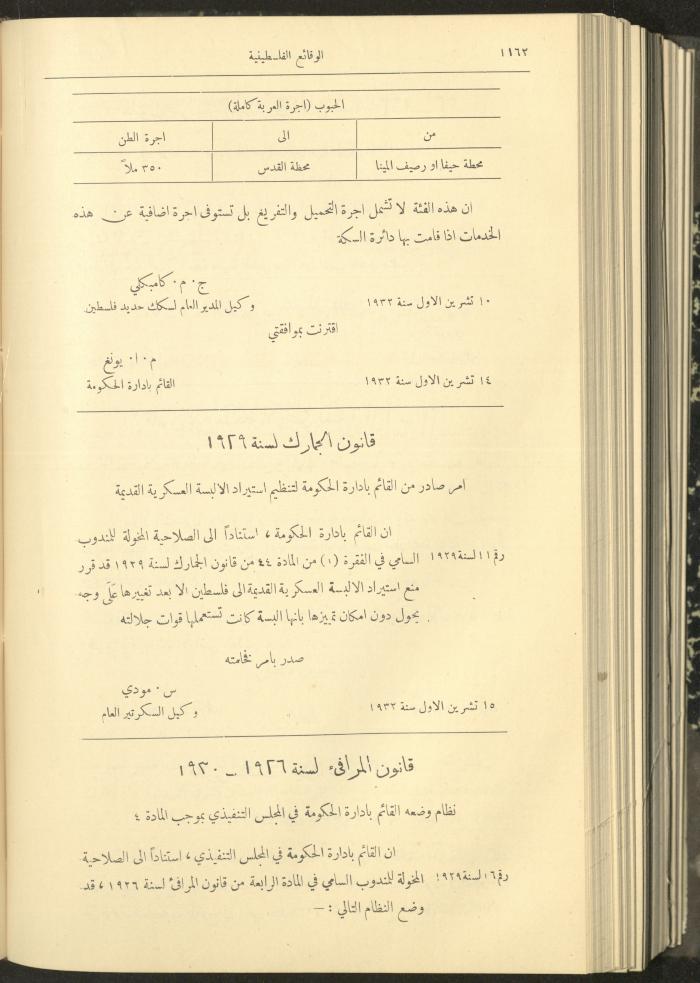 ١١٦٢
الوقائع الفلسطينية
الحبوب (اجرة العربة كاملة)
من الى اجرة الطن
محطة حيفا او رصيف المينا محطة القدس ٣٥٠ ملاً
ان هذه الفئة لا تشمل اجرة التحميل والتفريغ بل تستوفى اجرة اضافية عن هذه
الخدمات اذا قامت بها دائرة السكة
ج٠ م٠ كامبكلي
١٠ تشرين الاول سنة ١٩٣٢ وكيل المدير العام لسكك حديد فلسطين
اقترنت بموافقتي
م٠ا٠ يونغ
١٤ تشرين الاول سنة ١٩٣٢ القائم بادارة الحكومة
قانون الجمارك لسنة ١٩٢٩
امر صادر من القائم بادارة الحكومة لتنظيم استيراد الالبسة العسكرية القديمة
ان القائم بادارة الحكومة ، استناداً الى الصلاحية المخولة للمندوب
رقم ١١ لسنة ١٩٢٩ السامي في الفقرة (١) من المادة ٤٤ من قانون الجمارك لسنة ١٩٢٩ قد قرر
منع استيراد الالبسة العسكرية القديمة الى فلسطين الا بعد تغييرها على وجه
يحول دون امكان تمييزها بانها البسة كانت تستعملها قوات جلالته
صدر بامر فخامته
س٠ مودي
١٥ تشرين الاول سنة ١٩٣٢ وكيل السكرتير العام
قانون المرافئ لسنة ١٩٢٦ – ١٩٣٠
نظام وضعه القائم بادارة الحكومة في المجلس التنفيذي بموجب المادة ٤
ان القائم بادارة الحكومة في المجلس التنفيذي ، استناداً الى الصلاحية
لسنة ١٩٢٩ المخولة للمندوب السامي في المادة الرابعة من قانون المرافئ لسنة ١٩٢٦ ، قد
وضع النظام التالي :—